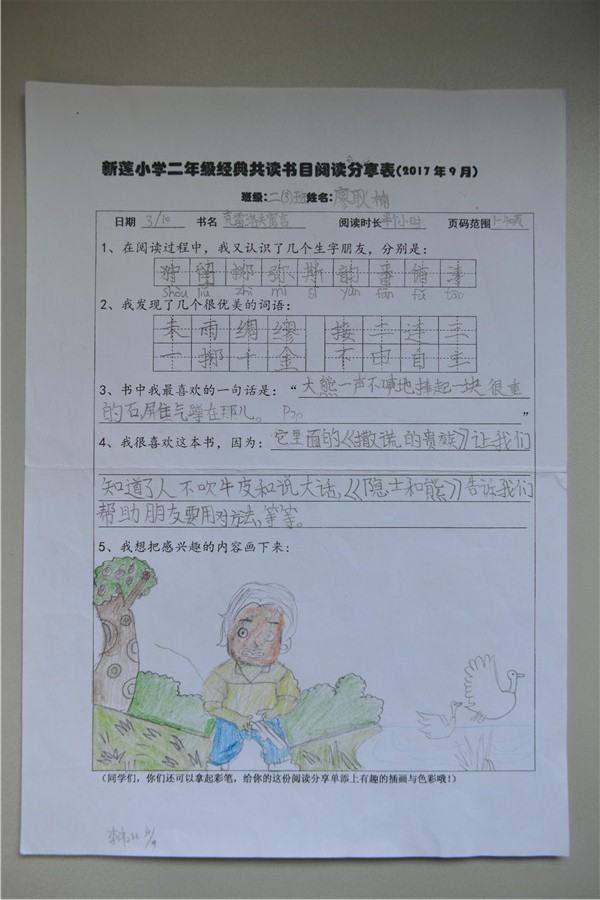 新莲小学二年级经典共读书目阅读分享表(2017年9月)
班级:二(3)班姓名:廖耿楠
日期 3/10 书名 克雷洛夫寓言 阅读时长 半小时 页码范围
1、在阅读过程中，我又认识了几个生字朋友，分别是：
狩 留 掷 弥 斯 韵 番
shòu liú zhì mí sī yùn fān
2、我发现了几个很优美的词语：
未雨绸缪 接二连三
一掷千金 不由自主
3、书中我最喜欢的一句话是：“大熊一声不吭地捧起一块很重
的石,屏住气蹲在那儿。 P20 ”
4、我很喜欢这本书，因为：它里面的《撒谎的贵族》让我们
知道了人不吹牛皮和说大话,《隐士和熊》告诉我们
帮助朋友要用对方法,等等。
5、我想把感兴趣的内容画下来：
(同学们，你们还可以拿起彩笔，给你的这份阅读分享单添上有趣的插画与色彩哦！)